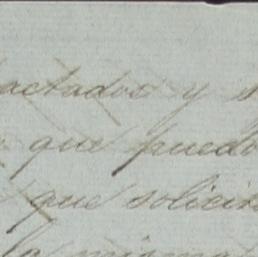 actados y
que puedo
que solicit
la misma